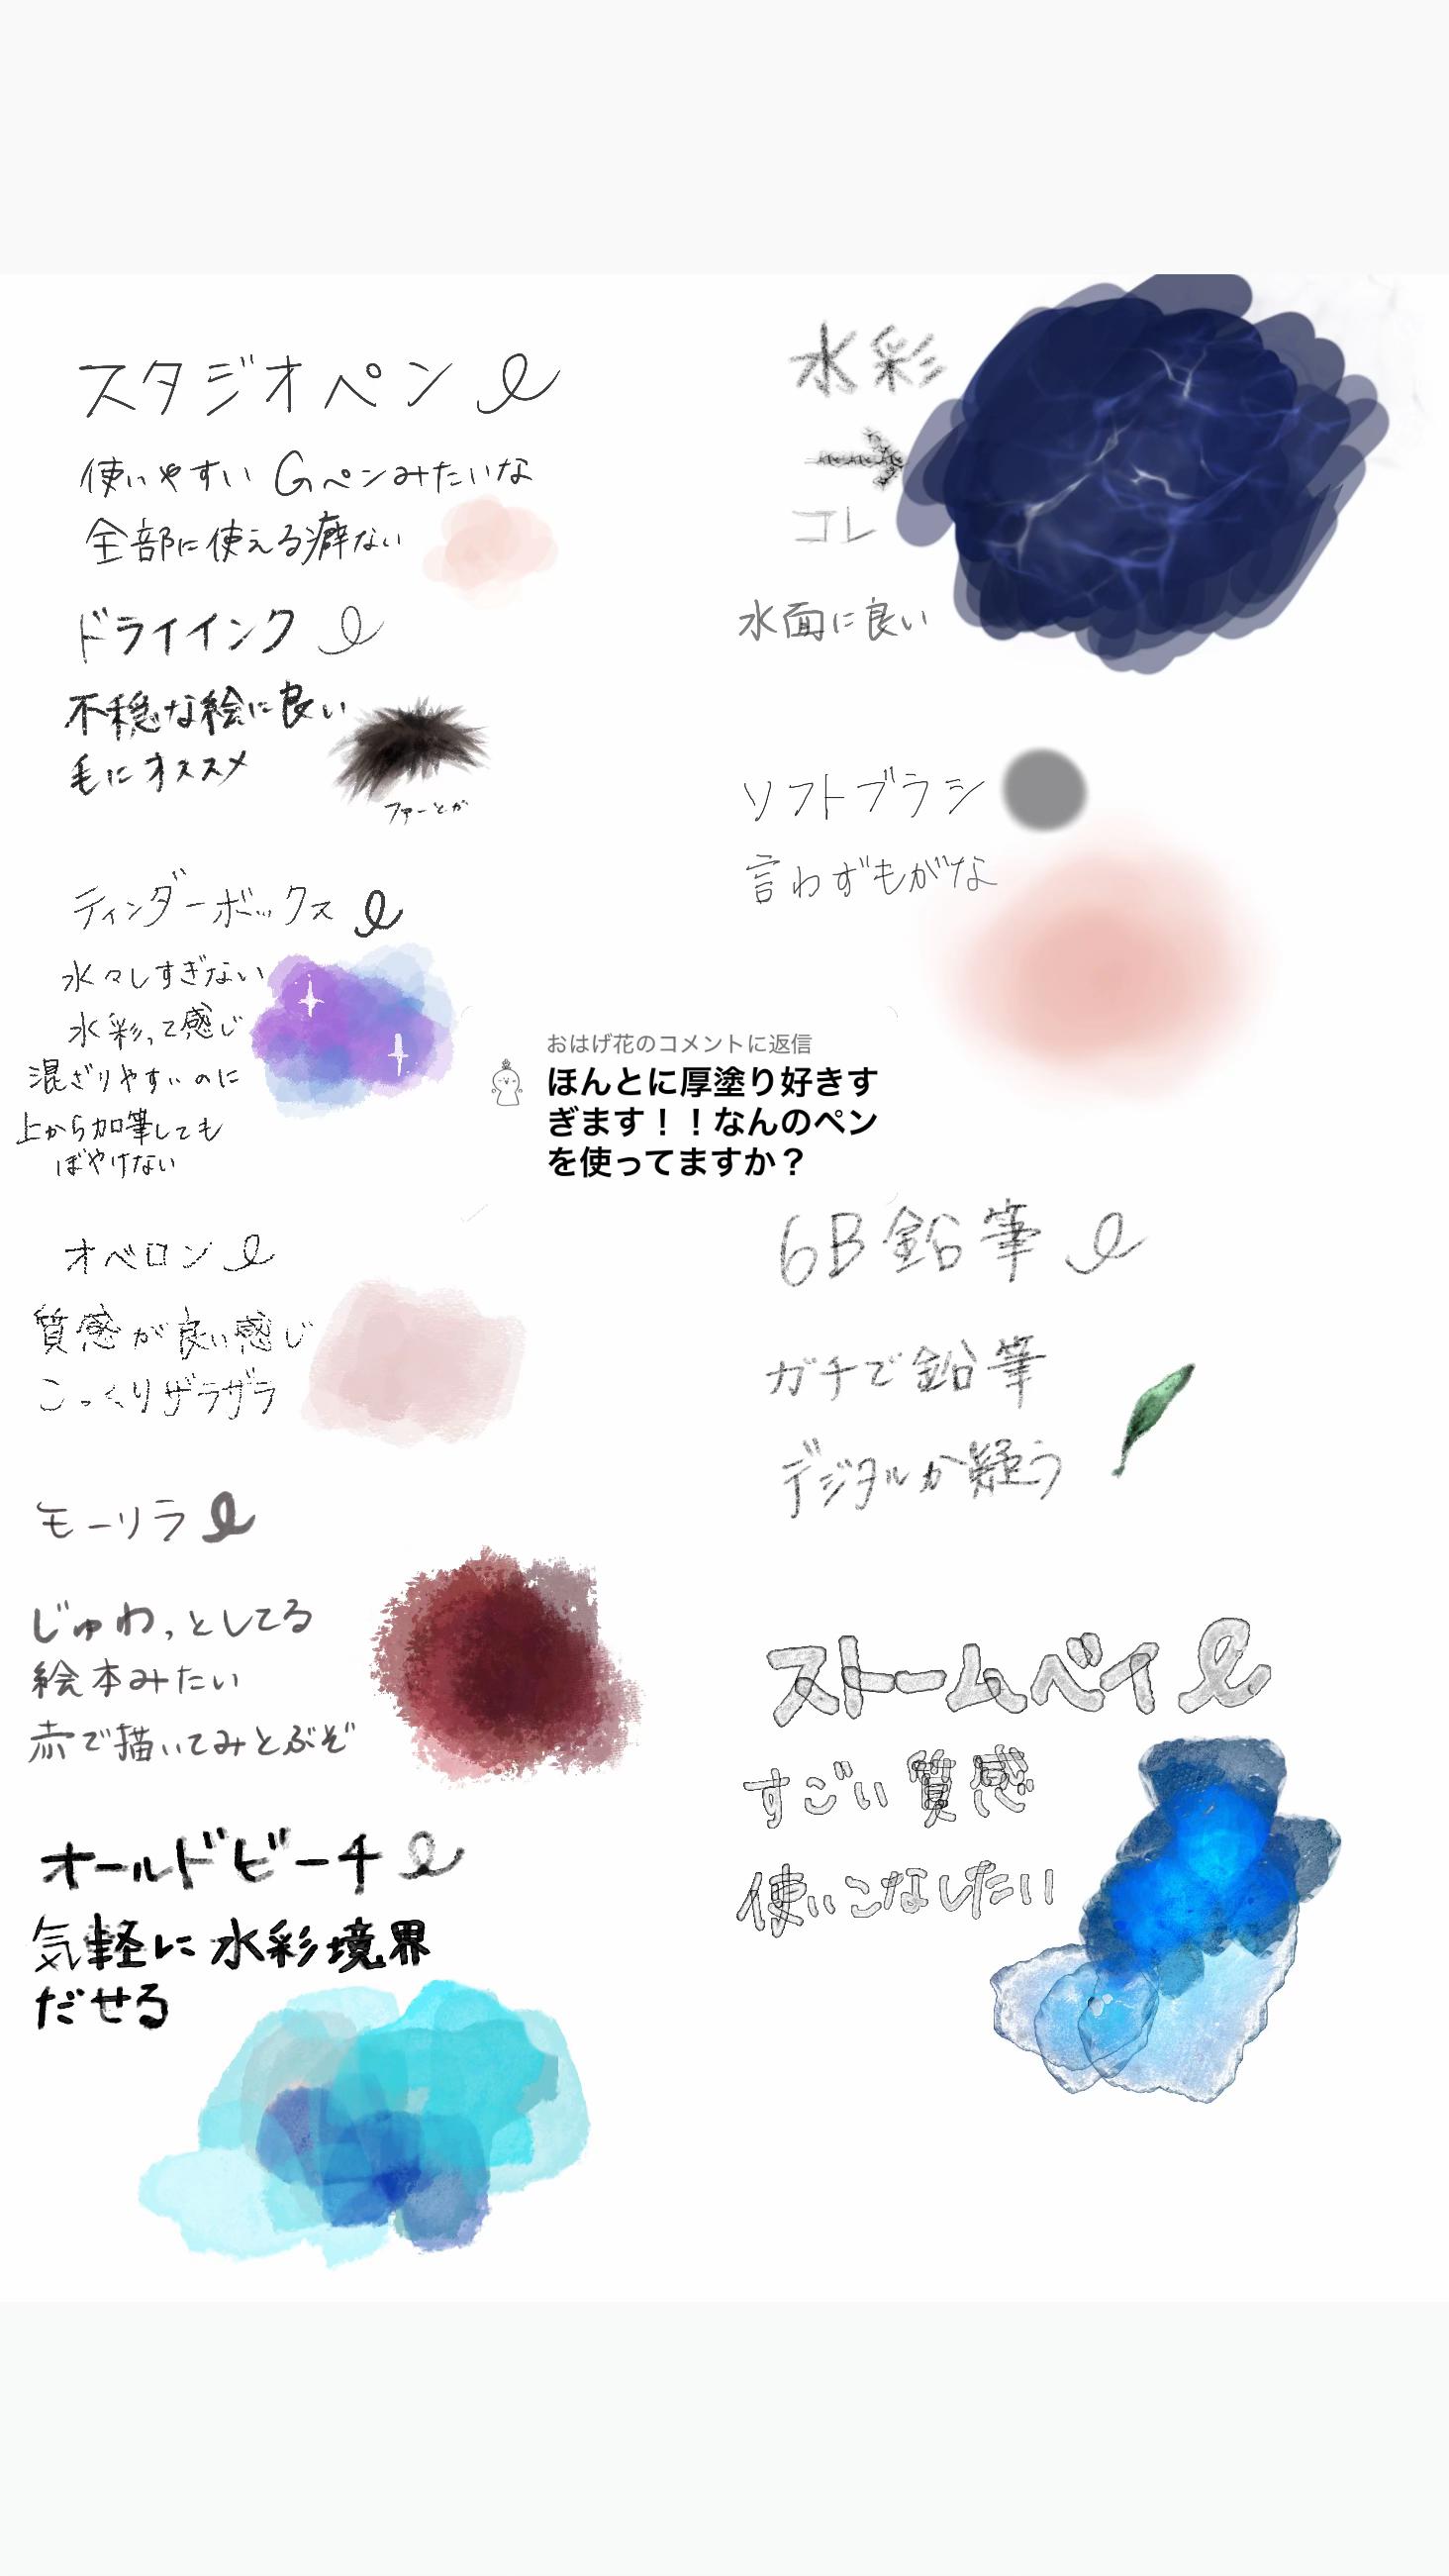 スタジオペン
使いやすい Gペンみたいな
全部に使える癖ない
ドライインク
不穏な絵に良い
毛にオススメ
ファーとか
ティンダーボックス
水々しすぎない
水彩って感じ
混ざりやすいのに
上から加筆しても
ぼやけない
オベロン
質感が良い感じ
こっくりザラザラ
モーリラ
じゅわっとしてる
絵本みたい
赤で描いてみとぶぞ
オールドビーチ
気軽に水彩境界
だせる
水彩
→
コレ
水面に良い
ソフトブラシ
言わずもがな
おはげ花のコメントに返信
ほんとに厚塗り好きす
ぎます！！なんのペン
を使ってますか？
6B鉛筆
ガチで鉛筆
デジタルか疑う
ストームベイ
すごい質感
使いこなしたい